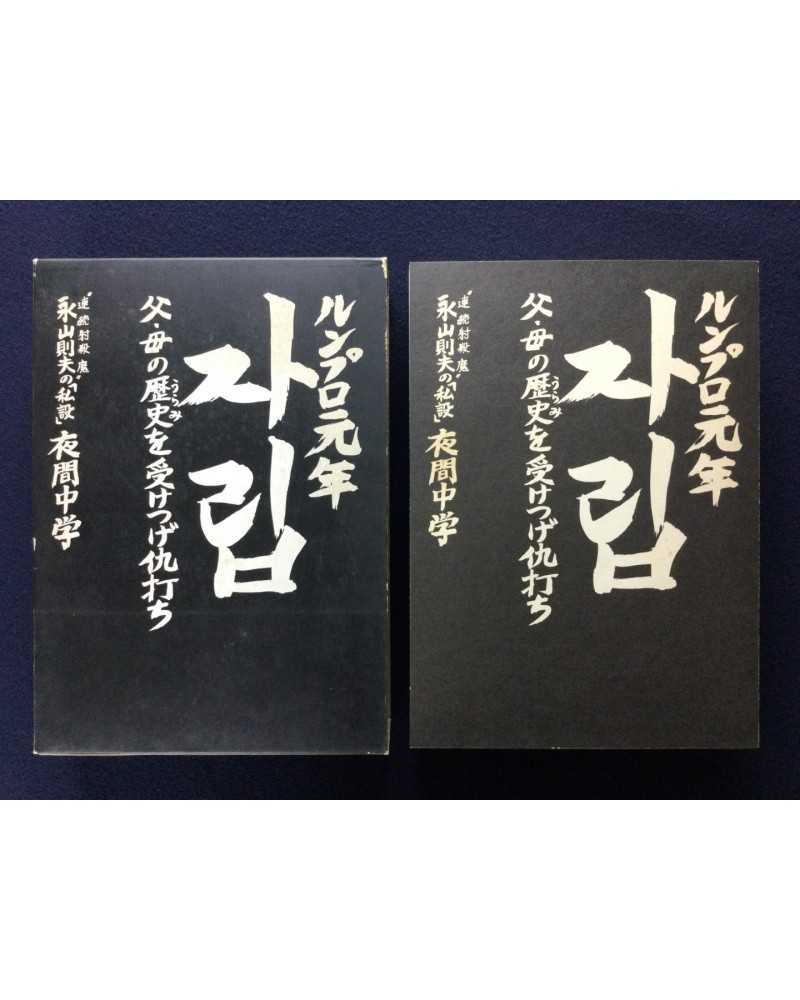 ルンプロ元年
자립
父・母の歴史を受けつげ仇打ち
うらみ
"連続射殺魔"
永山則夫の「私設」夜間中学
ルンプロ元年
자립
父・母の歴史を受けつげ仇打ち
うらみ
"連続射殺魔"
永山則夫の「私設」夜間中学